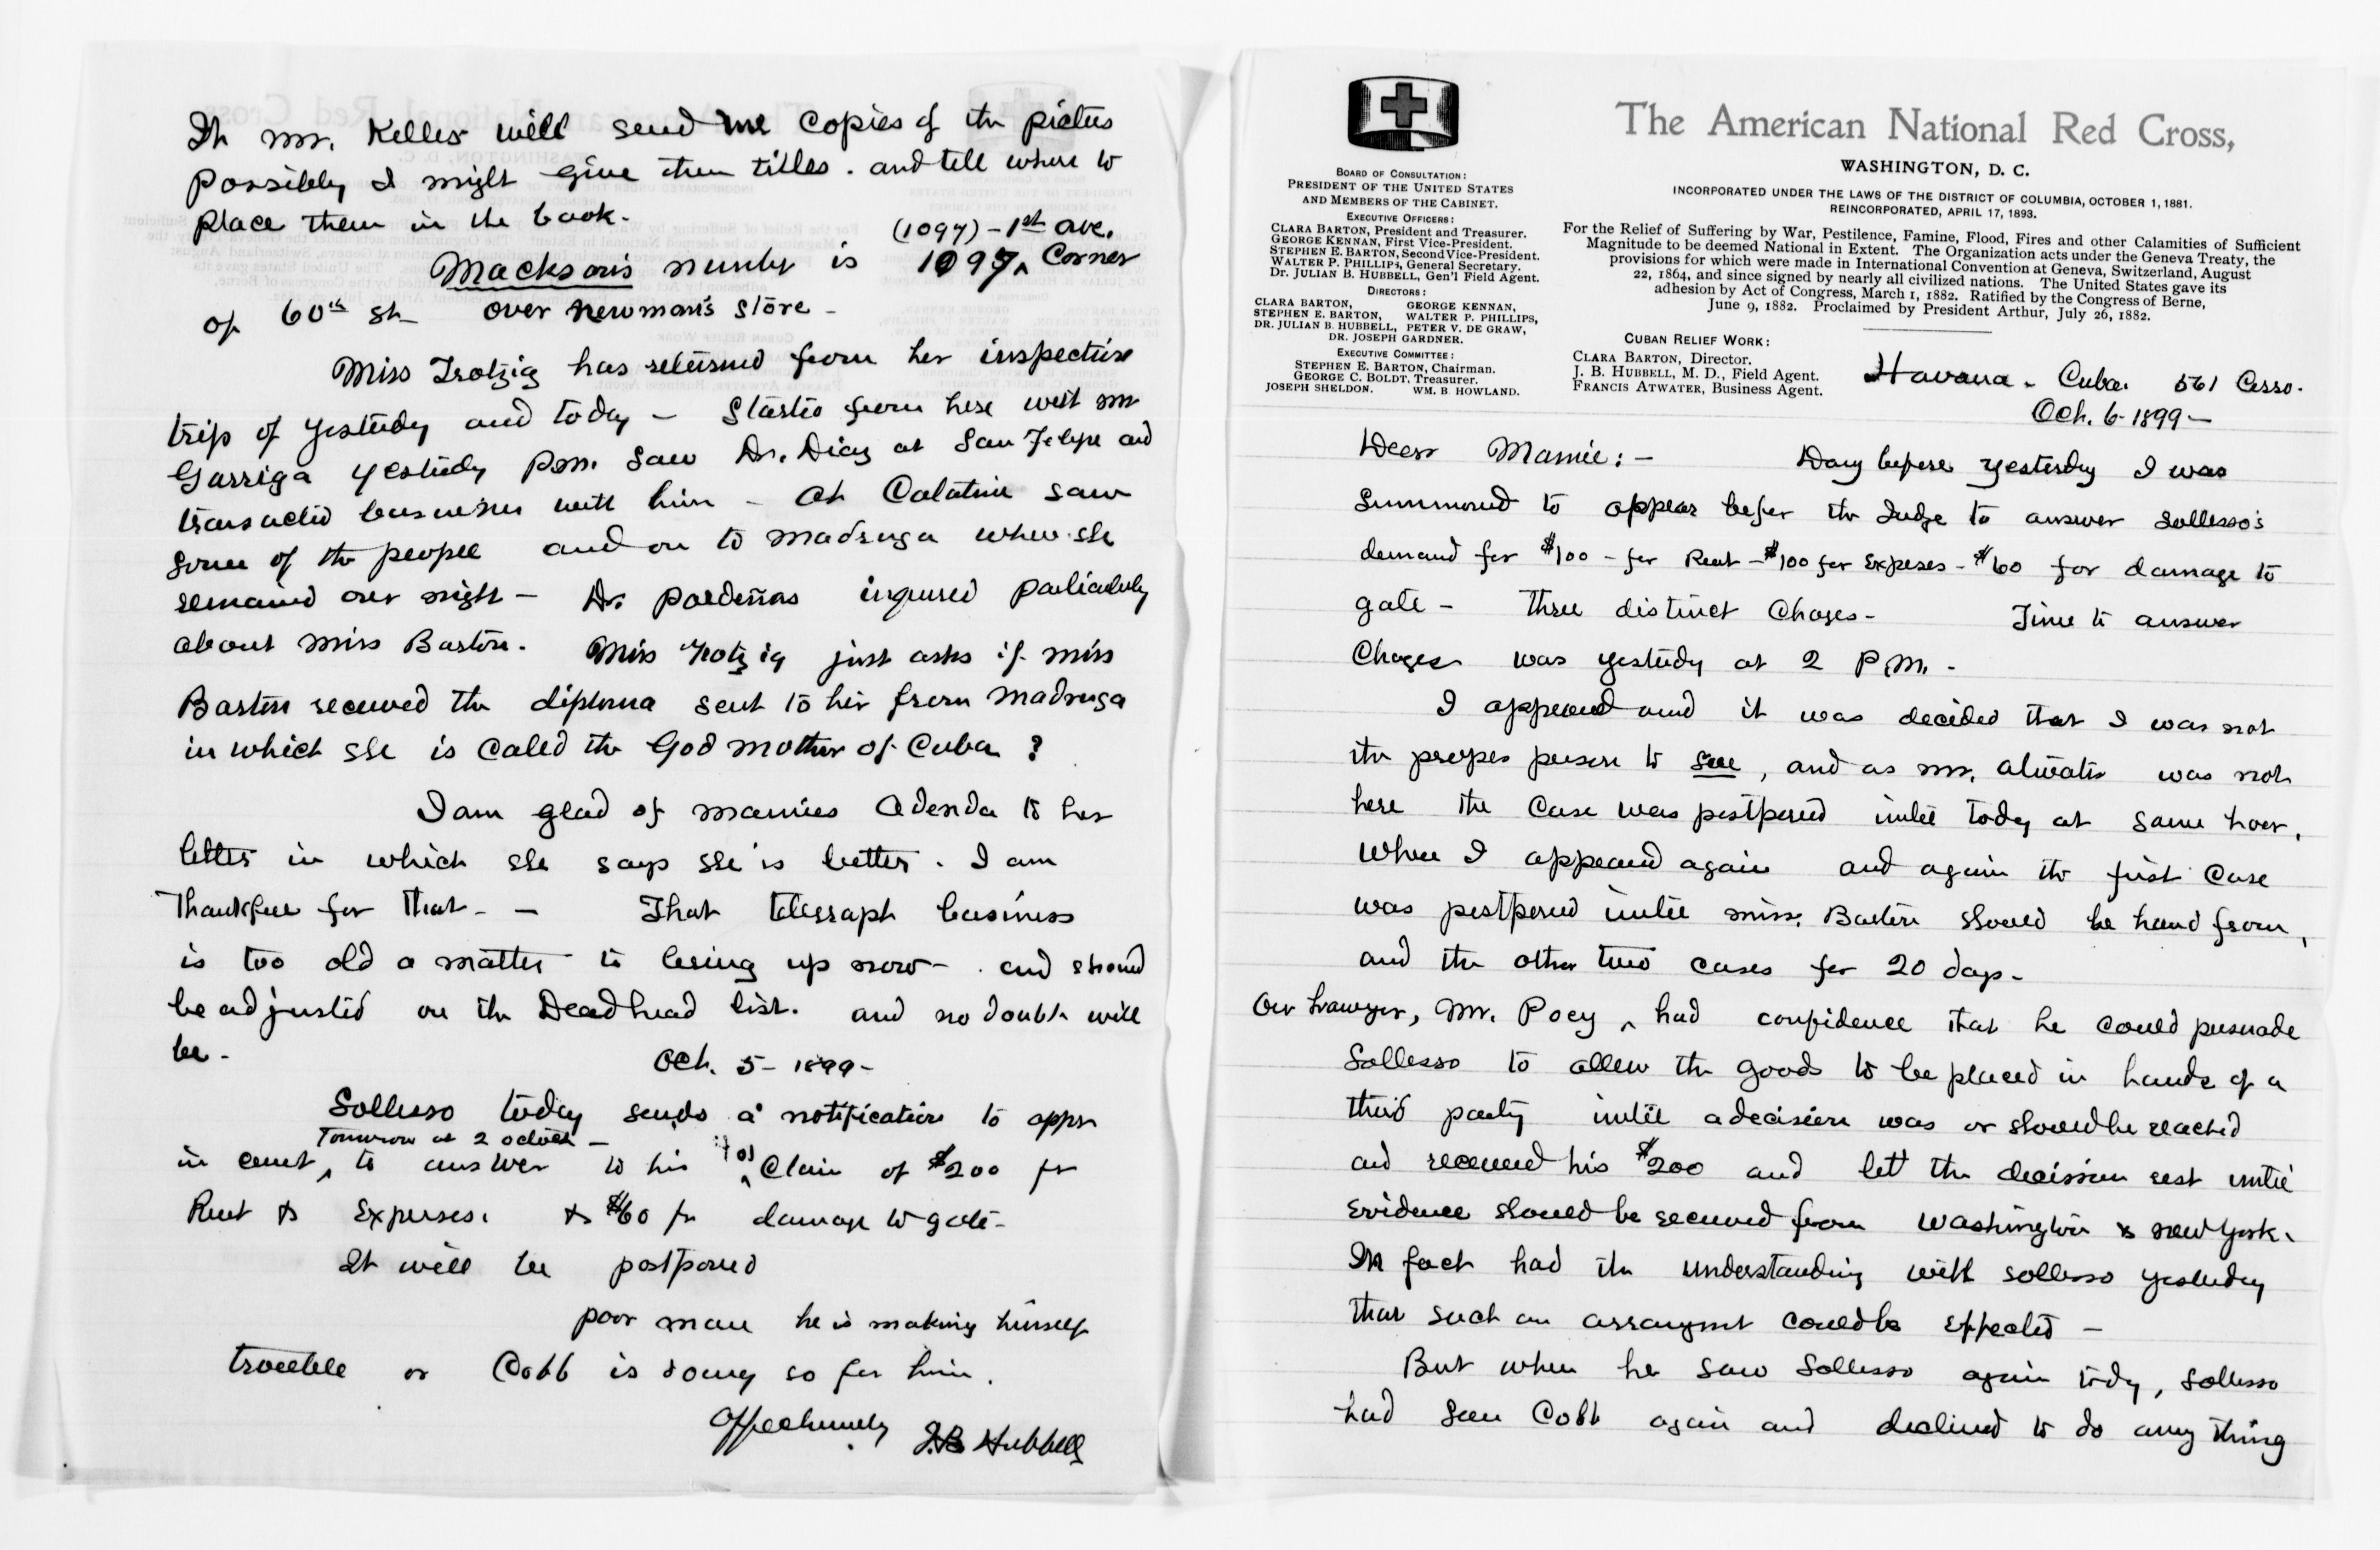 If Mr. Keller will send me copies of the pictures
possibly I might give them titles. and tell where to
place them in the book.
(1097) - 1st ave.
Mackson's number is 1097 Corner
of 60th St over Newman's Store -
Miss Trotzig has returned from her inspection
trip of yesterday and today - Started from here with Mr
Garriga yesterday P.M. Saw Dr. Diaz at San Felipe and
transacted business with him - At Catalina saw
some of the people and on to Madruga where she
remained over night - Dr. inquired particularly
about Miss Barton. Miss Trotzig just asks if Miss
Barton received the diploma sent to her from Madruga
in which she is called the God mother of Cuba ?
I am glad of Mamies Adenda to her
letter in which she says she is better. I am
Thankful for that - - That telegraph business
is too old a matter to bring up now - . and should
be adjusted on the Deadhead list. and no doubt will
be -
Oct. 5 - 1899 -
Sollosso today sends a notification to appr
Tomorrow at 2 oclock -
in court, to answer to his claim of $200 for
Rent & Expenses. & $60 for damage to gate -
It will be postponed
poor man he is making himself
trouble or Cobb is doing so for him.
Affectionately J.B. Hubbell
The American National Red Cross,
WASHINGTON, D. C.
INCORPORATED UNDER THE LAWS OF THE DISTRICT OF COLUMBIA, OCTOBER 1, 1881.
REINCORPORATED, APRIL 17, 1893.
For the Relief of Suffering by War, Pestilence, Famine, Flood, Fires and other Calamities of Sufficient
Magnitude to be deemed National in Extent. The Organization acts under the Geneva Treaty, the
provisions for which were made in International Convention at Geneva, Switzerland, August
22, 1864, and since signed by nearly all civilized nations. The United States gave its
adhesion by Act of Congress, March 1, 1882. Ratified by the Congress of Berne,
June 9, 1882. Proclaimed by President Arthur, July 26, 1882.
BOARD OF CONSULTATION:
PRESIDENT OF THE UNITED STATES
AND MEMBERS OF THE CABINET.
EXECUTIVE OFFICERS:
CLARA BARTON, President and Treasurer.
GEORGE KENNAN, First Vice-President.
STEPHEN E. BARTON, Second Vice-President.
WALTER P. PHILLIPS, General Secretary.
Dr. JULIAN B. HUBBELL, Gen'l Field Agent.
DIRECTORS:
CLARA BARTON, GEORGE KENNAN,
STEPHEN E. BARTON, WALTER P. PHILLIPS,
DR. JULIAN B. HUBBELL, PETER V. DE GRAW,
DR. JOSEPH GARDNER.
EXECUTIVE COMMITTEE:
STEPHEN E. BARTON, Chairman.
GEORGE C. BOLDT, Treasurer.
JOSEPH SHELDON. WM. B. HOWLAND.
CUBAN RELIEF WORK:
CLARA BARTON, Director.
J. B. HUBBELL, M. D., Field Agent.
FRANCIS ATWATER, Business Agent.
Havana - Cuba. 561 Cerro.
Oct. 6 - 1899 -
Dear Mamie: - Day before yesterday I was
summoned to appear before the Judge to answer Sollosso's
demand for $100 - for Rent - $100 for Expenses - $60 for damage to
gate - Three distinct Charges - Time to answer
Charges was yesterday at 2 P.M. -
I appeared and it was decided that I was not
the proper person to sue, and as Mr. Atwater was not
here the case was postponed until today at same hour,
When I appeared again and again the first Case
was postponed until Miss Barton should be heard from,
and the other two cases for 20 days -
Our Lawyer, Mr. Poey, had confidence that he could persuade
Sollosso to allow the goods to be placed in hands of a
third party until a decision was or should be reached
and received his $200 and let the decision rest until
evidence should be secured from Washington & New York.
In fact had the understanding with Sollosso yesterday
that such an arrangmt could be effected -
But when he saw Sollosso again tody, Sollosso
had seen Cobb again and declined to do any thing